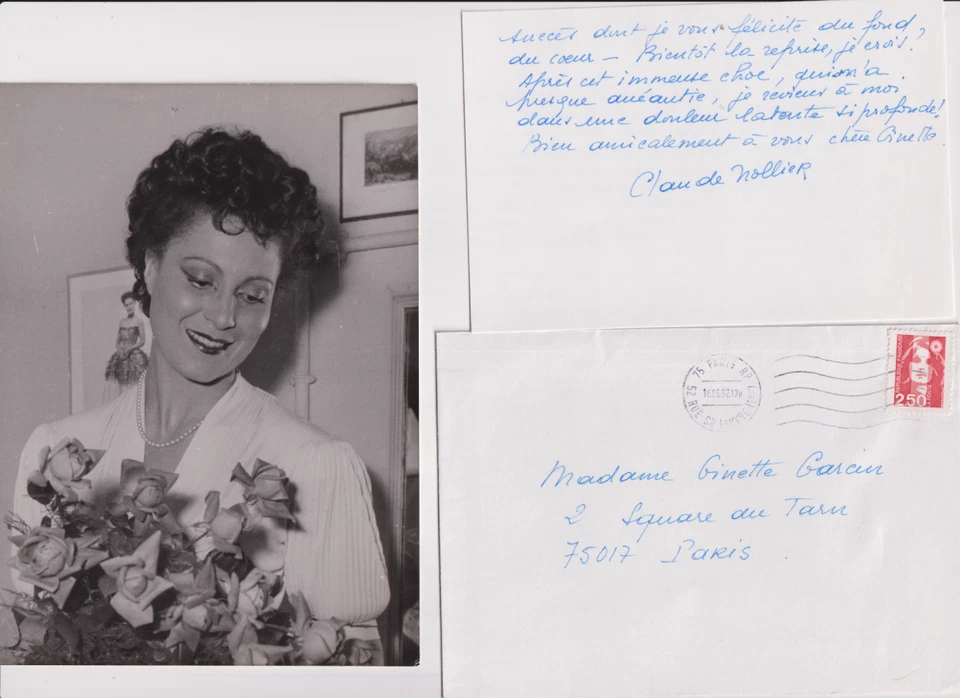 succès dont je vous félicite du fond,
du coeur – Bientôt la reprise, je crois.
Après cet immense choc, qui m'a
presque anéantie, je reviens à moi
dans une douleur latente si profonde!
Bien amicalement à vous chère Ginette
Claude Nollier
75 PARIS RP
52 RUE DU LOUVRE
REPUBLIQUE FRANÇAISE
2,50
Madame Ginette Garcin
2 Square du Tarn
75017 PARIS